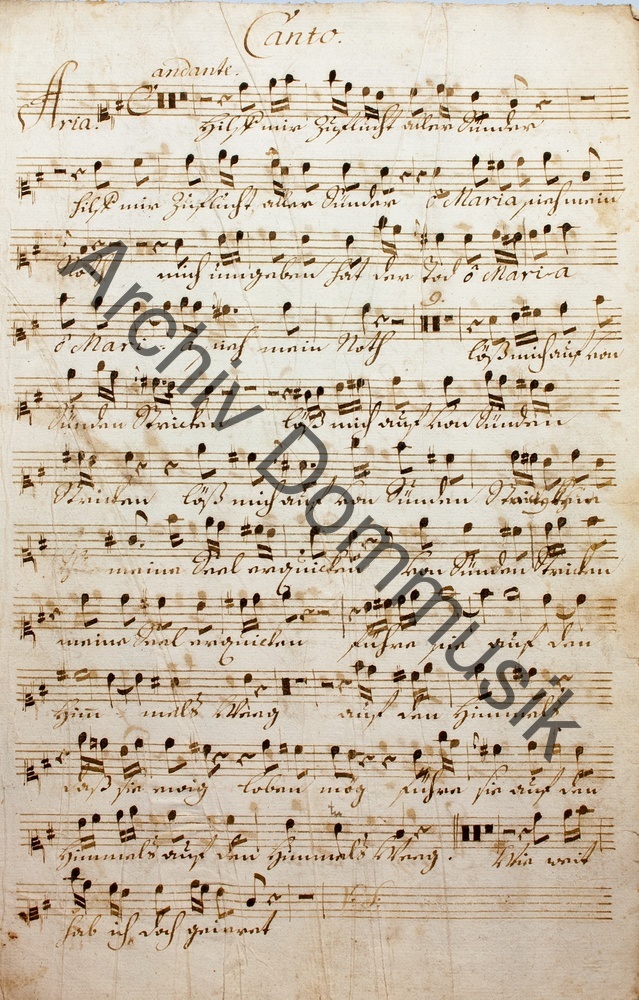 Canto.
andante.
Aria.
Hilff mir Zuflucht aller Sünder
hilff mir Zuflucht aller Sünder ô Maria sieh mein
Noth mich umgeben hat der Tod ô Mari-a
ô Mari-a sieh mein Noth
9.
löß mich auf von
Sünden Stricken löß mich auf von Sünden
Stricken löß mich auf von Sünden Stricken
meine Seel erquicken von Sünden Stricken
meine Seel erquicken führe sie auf den
Him-mels Weeg auf den Himmels
daß sie ewig loben mög führe sie auf den
Himmels auf den Himmels Weeg. Wie weit
hab ich doch geirret
Archiv Dommusik